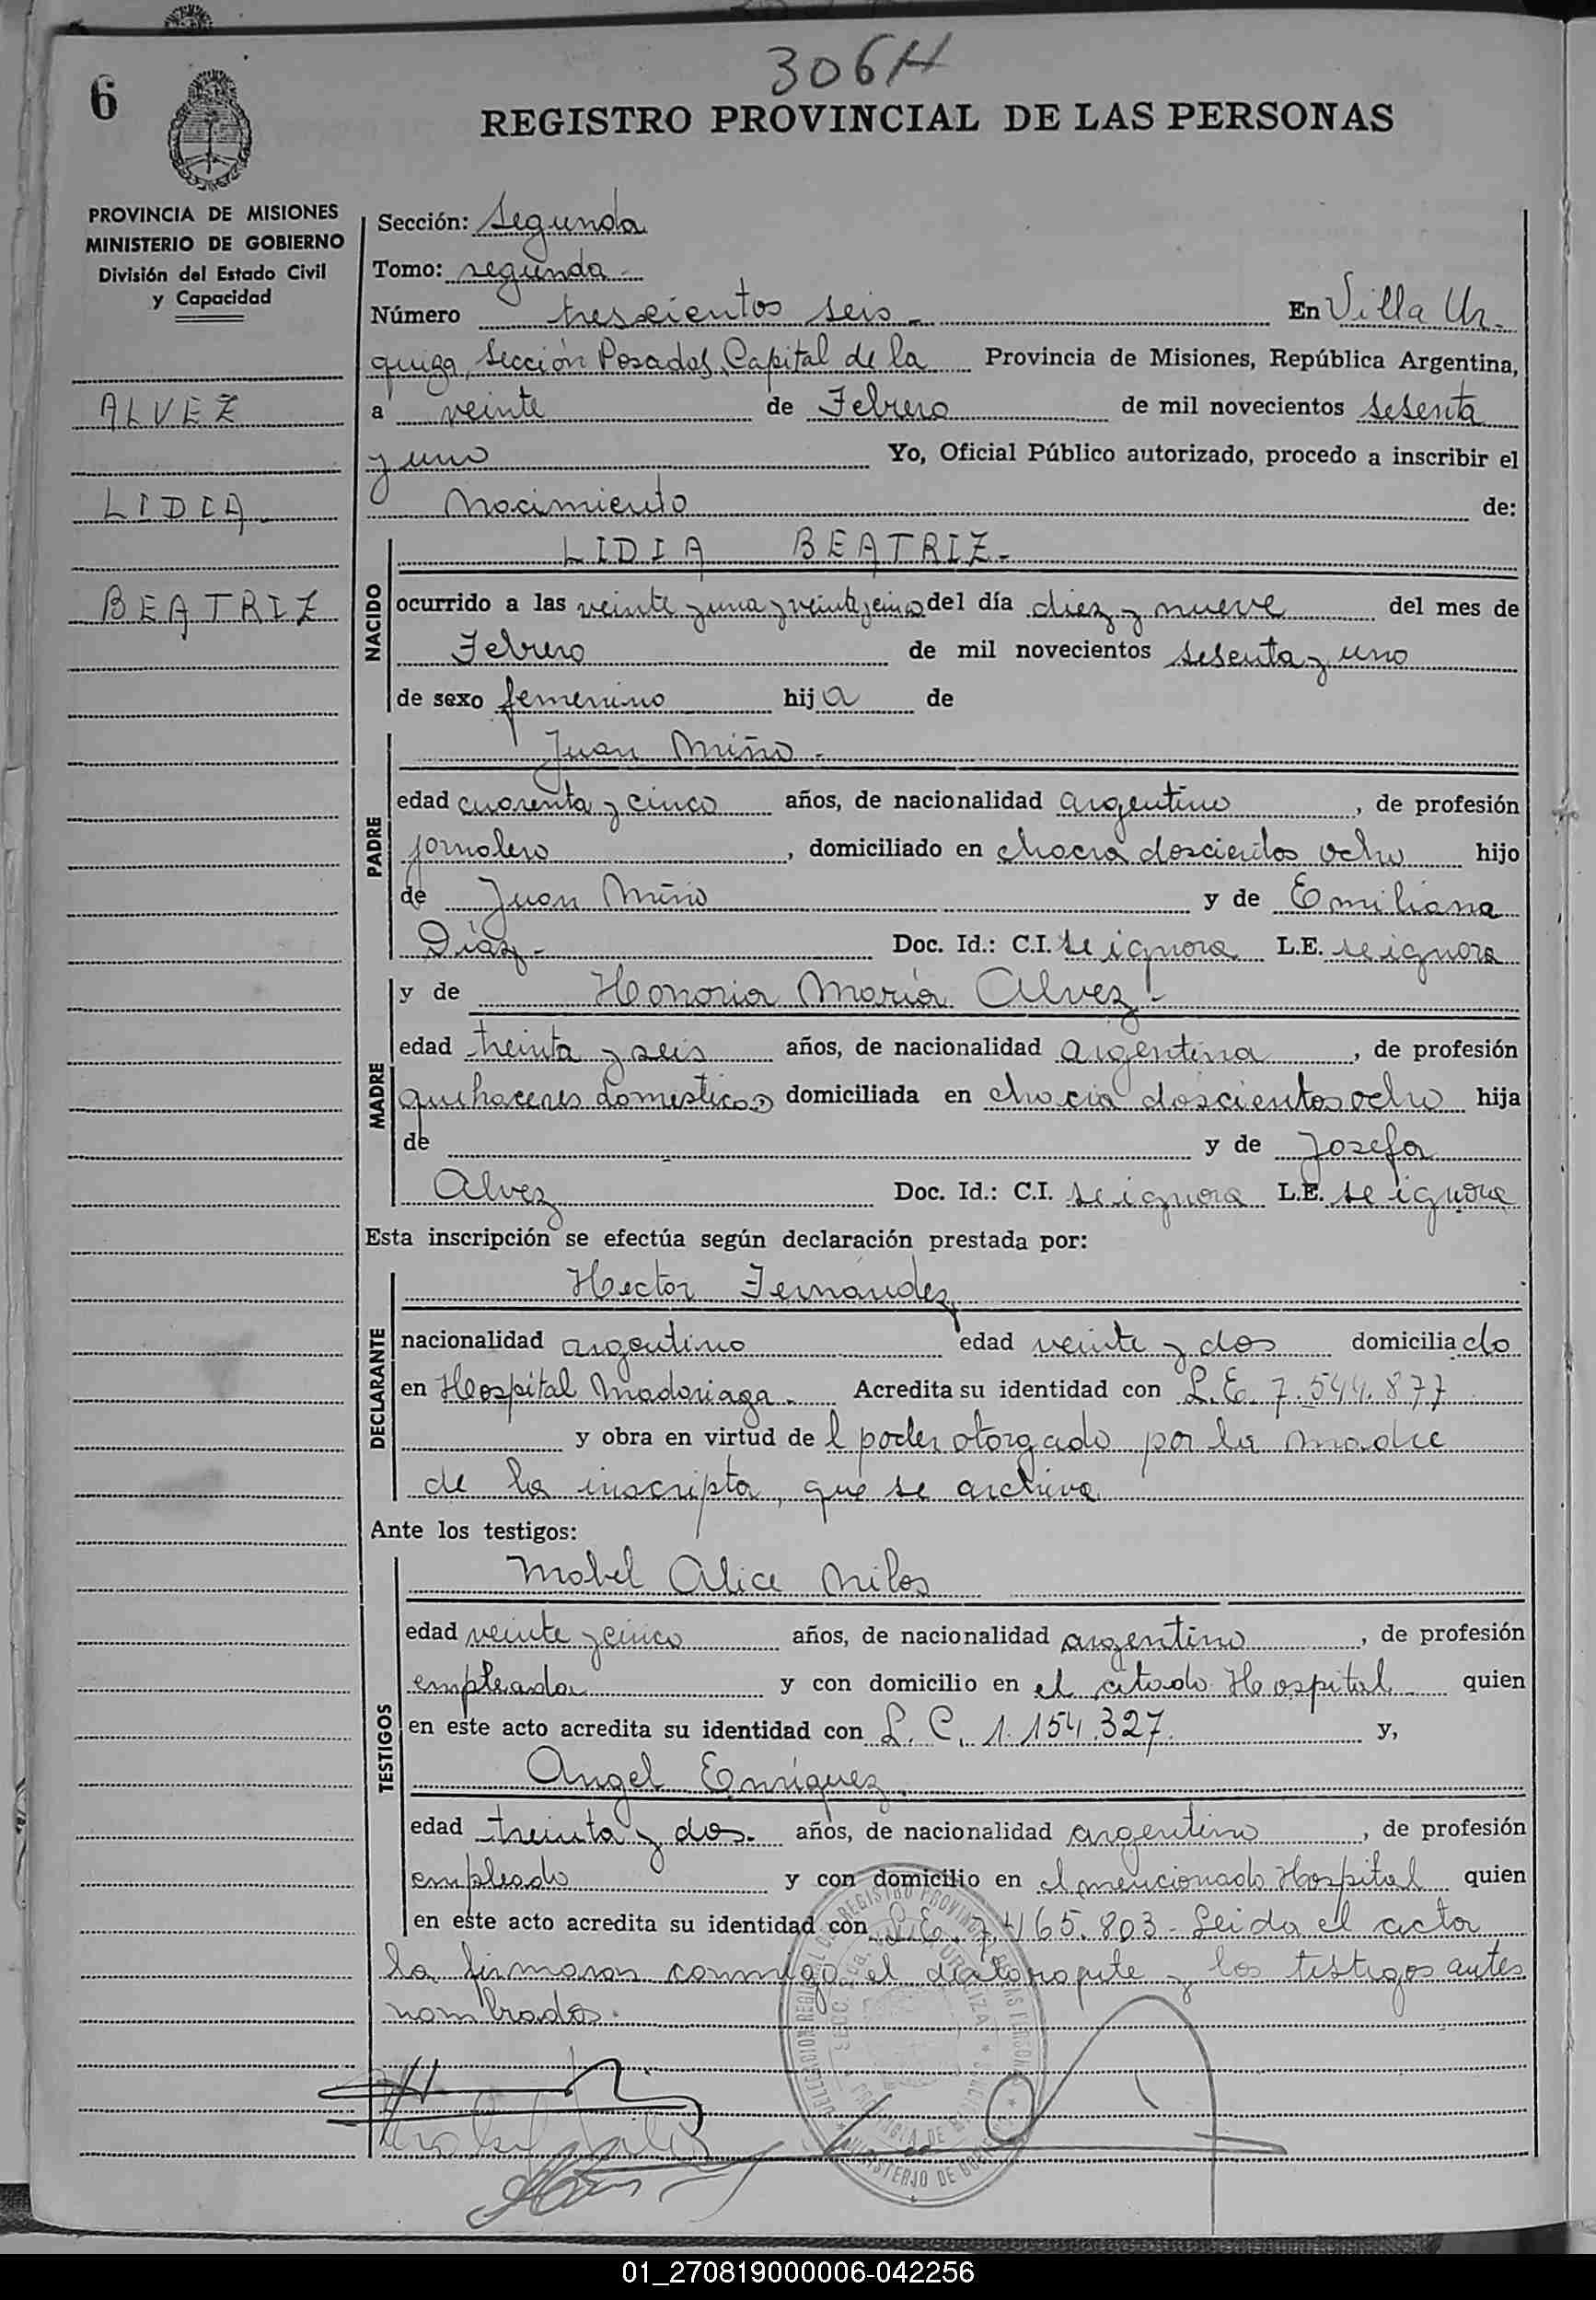 306 H
6
REGISTRO PROVINCIAL DE LAS PERSONAS
PROVINCIA DE MISIONES
MINISTERIO DE GOBIERNO
División del Estado Civil
y Capacidad
ALVEZ
LIDIA
BEATRIZ
Sección: Segunda
Tomo: segunda
Número trescientos seis - En Villa Ur-
quiza, Sección Posadas, Capital de la Provincia de Misiones, República Argentina,
a veinte de Febrero de mil novecientos sesenta
y uno Yo, Oficial Público autorizado, procedo a inscribir el
Nacimiento de:
NACIDO
LIDIA BEATRIZ.-
ocurrido a las veinte y una y veinte y cinco del día diez y nueve del mes de
Febrero de mil novecientos sesenta y uno
de sexo femenino hija de
PADRE
Juan Miño.-
edad cuarenta y cinco años, de nacionalidad argentino, de profesión
jornalero, domiciliado en chacra doscientos ocho hijo
de Juan Miño y de Emiliana
Díaz.- Doc. Id.: C.I. se ignora L.E. se ignora
MADRE
y de Honoria María Alvez.-
edad treinta y seis años, de nacionalidad argentina, de profesión
quehaceres domesticos domiciliada en chacra doscientos ocho hija
de - y de Josefa
Alvez Doc. Id.: C.I. se ignora L.E. se ignora
Esta inscripción se efectúa según declaración prestada por:
DECLARANTE
Hector Fernández
nacionalidad argentino edad veinte y dos domiciliado
en Hospital Madariaga.- Acredita su identidad con L.E. 7.544.877
y obra en virtud del poder otorgado por la madre
de la inscripta, que se archiva
Ante los testigos:
TESTIGOS
Mabel Alice Milos
edad veinte y cinco años, de nacionalidad argentino, de profesión
empleada y con domicilio en el citado Hospital quien
en este acto acredita su identidad con L.C. 1.154.327. y,
Angel Enriquez.
edad treinta y dos.- años, de nacionalidad argentino, de profesión
empleado y con domicilio en el mencionado Hospital quien
en este acto acredita su identidad con L.E. 7.465.803.- Leida el acta
la firmaron conmigo el declarante y los testigos antes
nombrados.
01_270819000006-042256